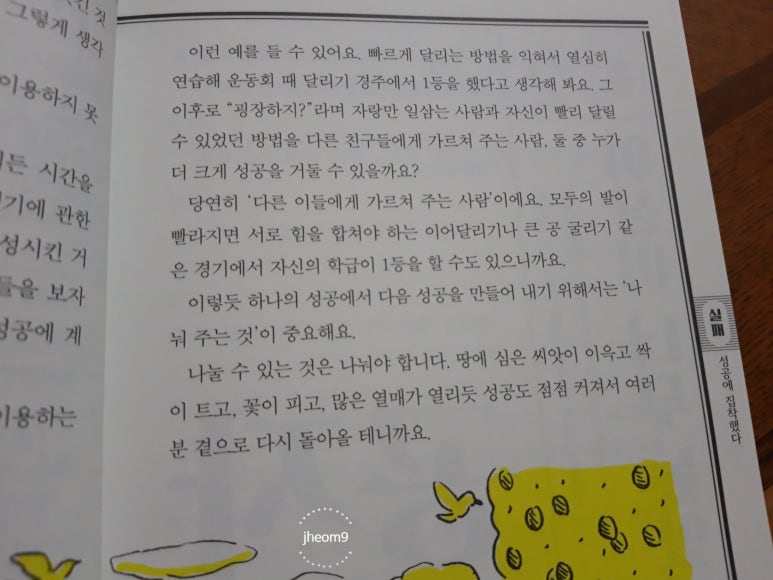 긴 것
그렇게 생각
이용하지 못
시간을
기에 관한
성시킨 거
들을 보자
성공에 계
이용하는
이런 예를 들 수 있어요. 빠르게 달리는 방법을 익혀서 열심히
연습해 운동회 때 달리기 경주에서 1등을 했다고 생각해 봐요. 그
이후로 “굉장하지?”라며 자랑만 일삼는 사람과 자신이 빨리 달릴
수 있었던 방법을 다른 친구들에게 가르쳐 주는 사람, 둘 중 누가
더 크게 성공을 거둘 수 있을까요?
당연히 ‘다른 이들에게 가르쳐 주는 사람’이에요. 모두의 발이
빨라지면 서로 힘을 합쳐야 하는 이어달리기나 큰 공 굴리기 같
은 경기에서 자신의 학급이 1등을 할 수도 있으니까요.
이렇듯 하나의 성공에서 다음 성공을 만들어 내기 위해서는 ‘나
눠 주는 것’이 중요해요.
나눌 수 있는 것은 나눠야 합니다. 땅에 심은 씨앗이 이윽고 싹
이 트고, 꽃이 피고, 많은 열매가 열리듯 성공도 점점 커져서 여러
분 곁으로 다시 돌아올 테니까요.
실패
성공에 집착했다
jheom9